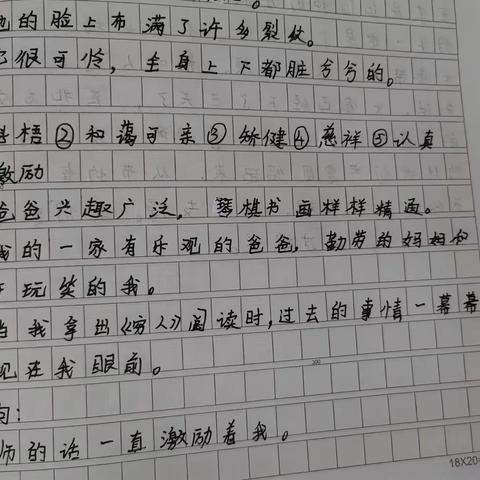 的脸上布满了许多裂纹。
很可怜，全身上下都脏兮兮的。
梧②和蔼可亲③矫健④慈祥⑤认真
激励
爸爸兴趣广泛，琴棋书画样样精通。
我的一家有乐观的爸爸，勤劳的妈妈和
玩笑的我。
当我拿出《穷人》阅读时，过去的事情一幕幕
现在我眼前。
句：
师的话一直激励着我。
18X20=